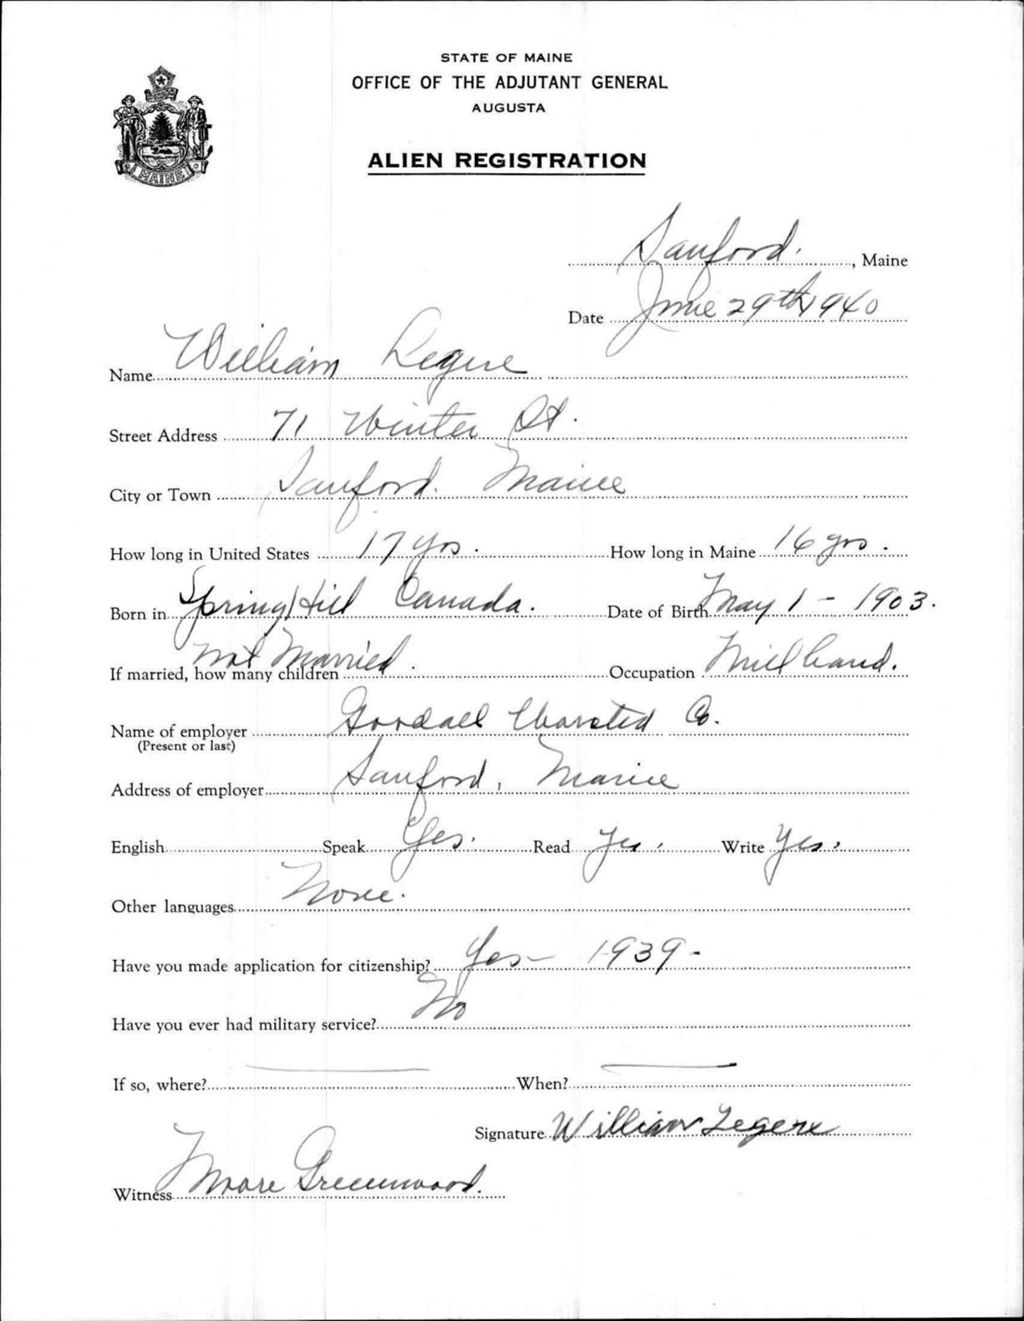 STATE OF MAINE
OFFICE OF THE ADJUTANT GENERAL
AUGUSTA
ALIEN REGISTRATION
MAINE
Sanford. , Maine
Date June 29th 1940
Name William Legere
Street Address 71 Winter St.
City or Town Sanford. Maine
How long in United States 17 yrs. How long in Maine 16 yrs.
Born in Spring Hill Canada. Date of Birth May 1 - 1903.
If married, how many children Not Married. Occupation Mill hand.
Name of employer Goodall Worsted Co.
(Present or last)
Address of employer Sanford, Maine
English Speak Yes. Read Yes. Write Yes.
Other languages None.
Have you made application for citizenship? Yes - 1939 -
Have you ever had military service? No
If so, where? — When? —
Signature William Legere
Witness Greenwood.